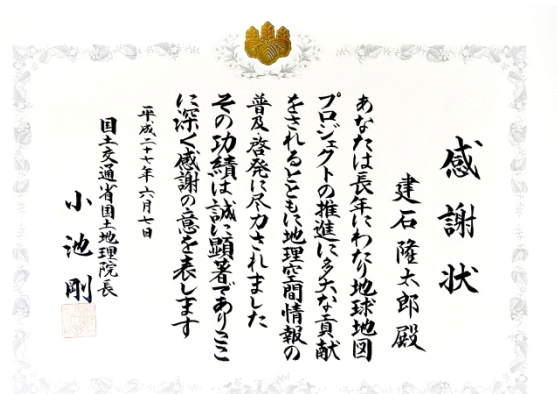 感謝状
建石隆太郎殿
あなたは長年にわたり地球地図
プロジェクトの推進に多大な貢献
をされるとともに地理空間情報の
普及啓発に尽力されました
その功績は誠に顕著でありここ
に深く感謝の意を表します
平成二十七年六月七日
国土交通省国土地理院長
小池剛